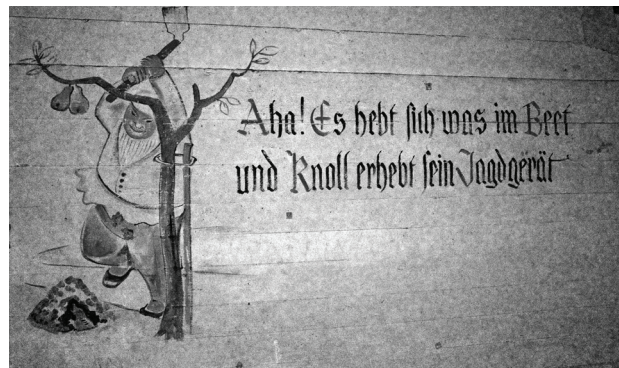 Aha! Es hebt sich was im Beet
und Knoll erhebt sein Jagdgerät